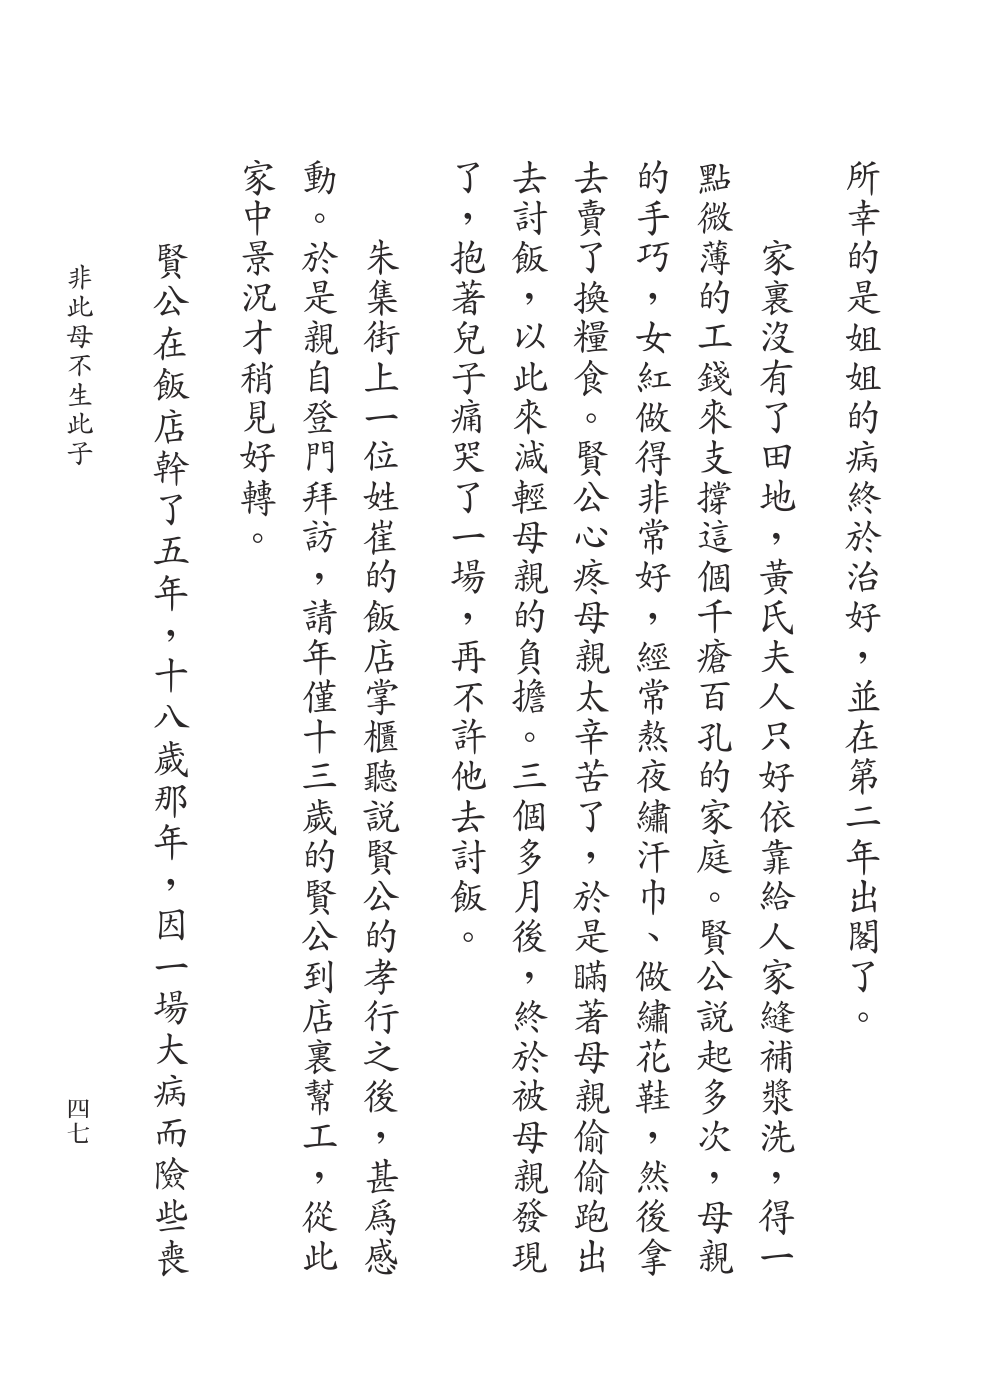 所幸的是姐姐的病終於治好，並在第二年出閣了。
家裏沒有了田地，黃氏夫人只好依靠給人家縫補漿洗，得一
點微薄的工錢來支撐這個千瘡百孔的家庭。賢公説起多次，母親
的手巧，女紅做得非常好，經常熬夜繡汗巾、做繡花鞋，然後拿
去賣了換糧食。賢公心疼母親太辛苦了，於是瞞著母親偷偷跑出
去討飯，以此來減輕母親的負擔。三個多月後，終於被母親發現
了，抱著兒子痛哭了一場，再不許他去討飯。
朱集街上一位姓崔的飯店掌櫃聽説賢公的孝行之後，甚爲感
動。於是親自登門拜訪，請年僅十三歲的賢公到店裏幫工，從此
家中景況才稍見好轉。
賢公在飯店幹了五年，十八歲那年，因一場大病而險些喪
非此母不生此子
四七